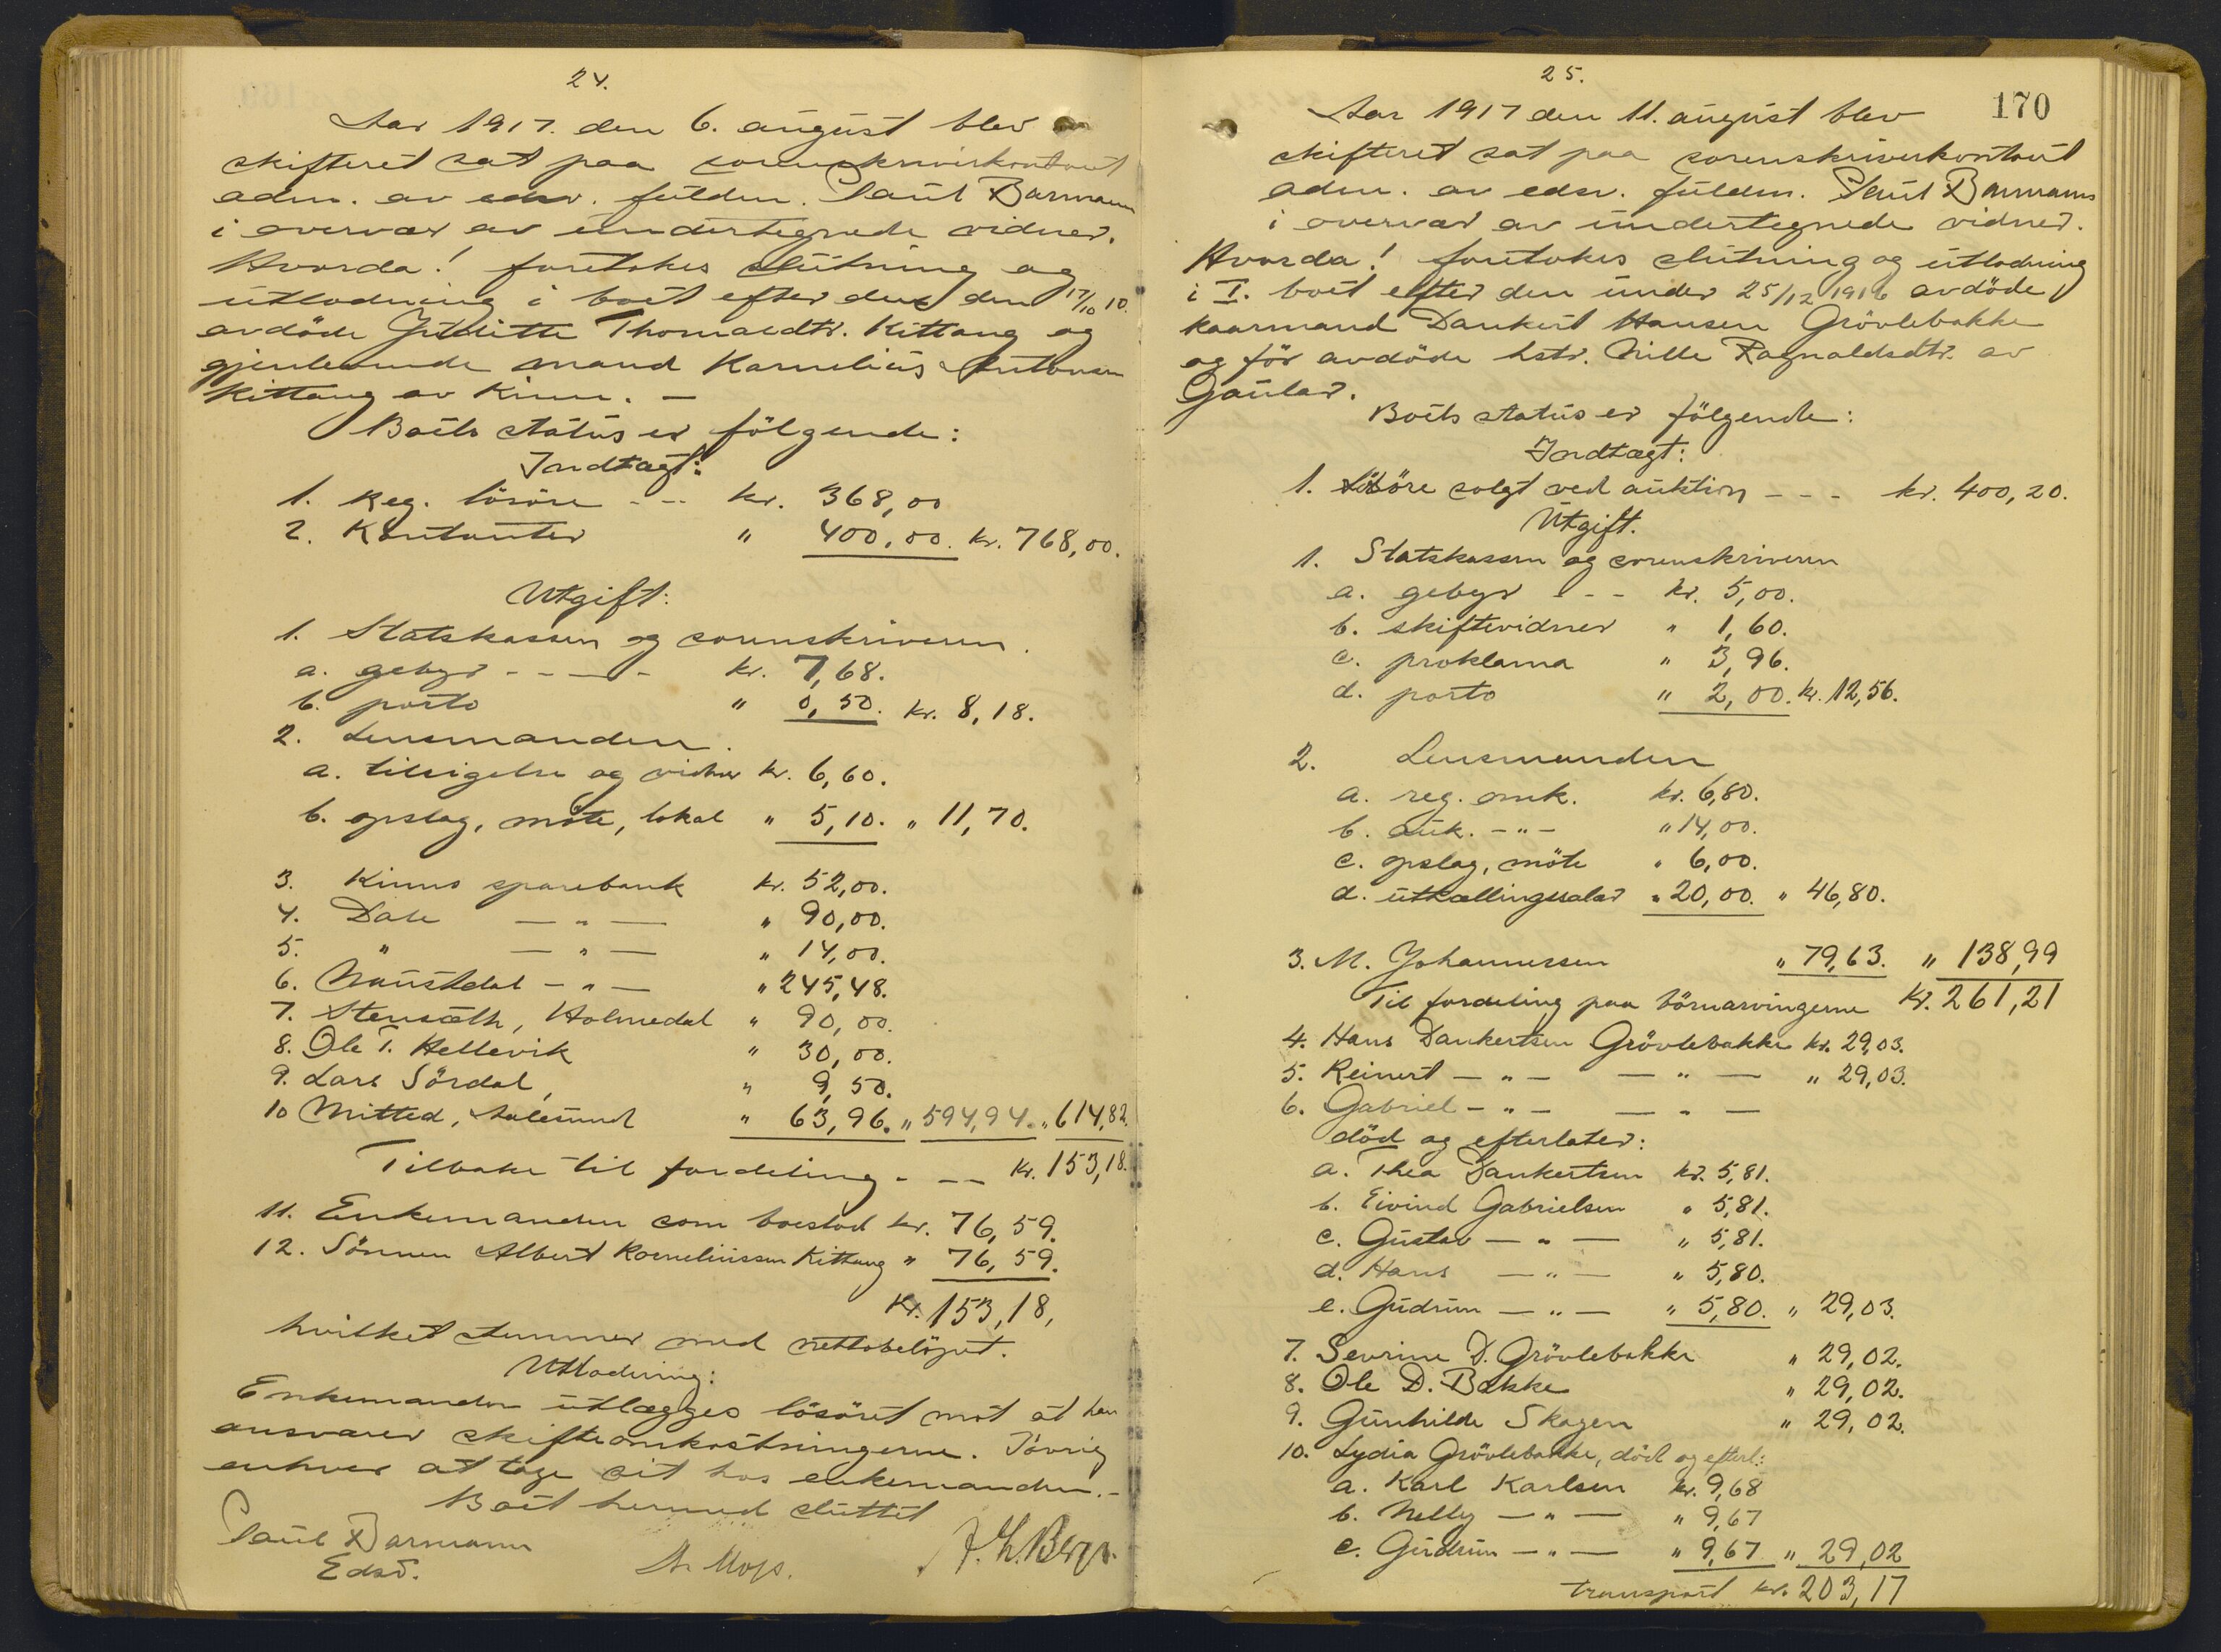 24.
Aar 1917. den 6. august blev
skifteret sat paa sorenskriverkontoret
adm. av edsv. fuldm. Paul Barmann
i overvær av undertegnede vidner.
Hvorda! foretokes slutning og
utlodning i boet efter den den 17/10 10.
avdöde Thomasdtr. Kittang og
gjenlevende mand Kornelius Antonsen
Kittang av Kinn. —
Boets status er följgende:
Indtægt:
1. Reg. lösöre - - - kr. 368,00
2. Kontanter " 400,00. kr. 768,00.
Utgift:
1. Statskassen og sorenskriveren.
a. gebyr - - - - kr. 7,68.
b. porto " 0,50. kr. 8,18.
2. Lensmanden.
a. tilsigelse og vidner kr. 6,60.
b. opslag, möte, lokal " 5,10. " 11,70.
3. Kinns sparebank kr. 52,00.
4. Dale — " — " 90,00.
5. " — " — " 14,00.
6. Naustdal - " — " 245,48.
7. Stensæth, Holmedal " 90,00.
8. Ole T. Hellevik " 30,00.
9. Lars Sördal, " 9,50.
10 Mitted, Aalesund " 63,96. " 594,94. " 614,82.
Tilbake til fordeling - — — kr. 153,18.
11. Enkemanden som boeslod kr. 76,59.
12. Sönnen Albert Korneliussen Kittang " 76,59.
Kr. 153,18,
hvilket stemmer med nettobelöpet.
Utlodning:
Enkemanden utlægges lösöret mot at han
ansvarer skifteomkostningerne. Iövrig
enhver at tage sit hos enkemanden. -
Boet hermed sluttet
Paul Barmann
Edsv.
25.
170
Aar 1917 den 11. august blev
skifteret sat paa sorenskriverkontoret
adm. av edsv. fuldm. Paul Barmann
i overvær av undertegnede vidner.
Hvorda! foretokes slutning og utlodning
i I. boet efter den under 25/12 1916 avdöde
kaarmand Dankert Hansen Grövlebakke
og för avdöde hstr. Nille Ragnaldsdtr. av
Gaular.
Boets status er fölgende:
Indtægt:
1. Lösöre solgt ved auktion - - - kr. 400,20.
Utgift.
1. Statskassen og sorenskriveren
a. gebyr - - - kr. 5,00.
b. skiftevidner " 1,60.
c. proklama " 3,96.
d. porto " 2,00. kr. 12,56.
2. Lensmanden
a. reg. omk. kr. 6,80.
b. auk. - " - " 14,00.
c. opslag, möte " 6,00.
d. utkallingssalær " 20,00. " 46,80.
3. M. Johannessen " 79,63. " 138,99
Til fordeling paa börnarvingerne Kr. 261,21
4. Hans Dankertsen Grövlebakke kr. 29,03.
5. Reinert - " - — " — " 29,03.
6. Gabriel - " - — " —
död og efterlater:
a. Thea Dankertsen kr. 5,81.
b. Eivind Gabrielsen " 5,81.
c. Gustav — " — " 5,81.
d. Hans — " — " 5,80.
e. Gudrun — " — " 5,80. " 29,03.
7. Sevrine D. Grövlebakke " 29,02.
8. Ole D. Bakke " 29,02.
9. Gunhilde Skagen " 29,02.
10. Lydia Grövlebakke, död og efterl.:
a. Karl Karlsen kr. 9,68
b. Nelly — " — " 9,67
c. Gudrun — " — " 9,67 " 29,02
transport kr. 203,17